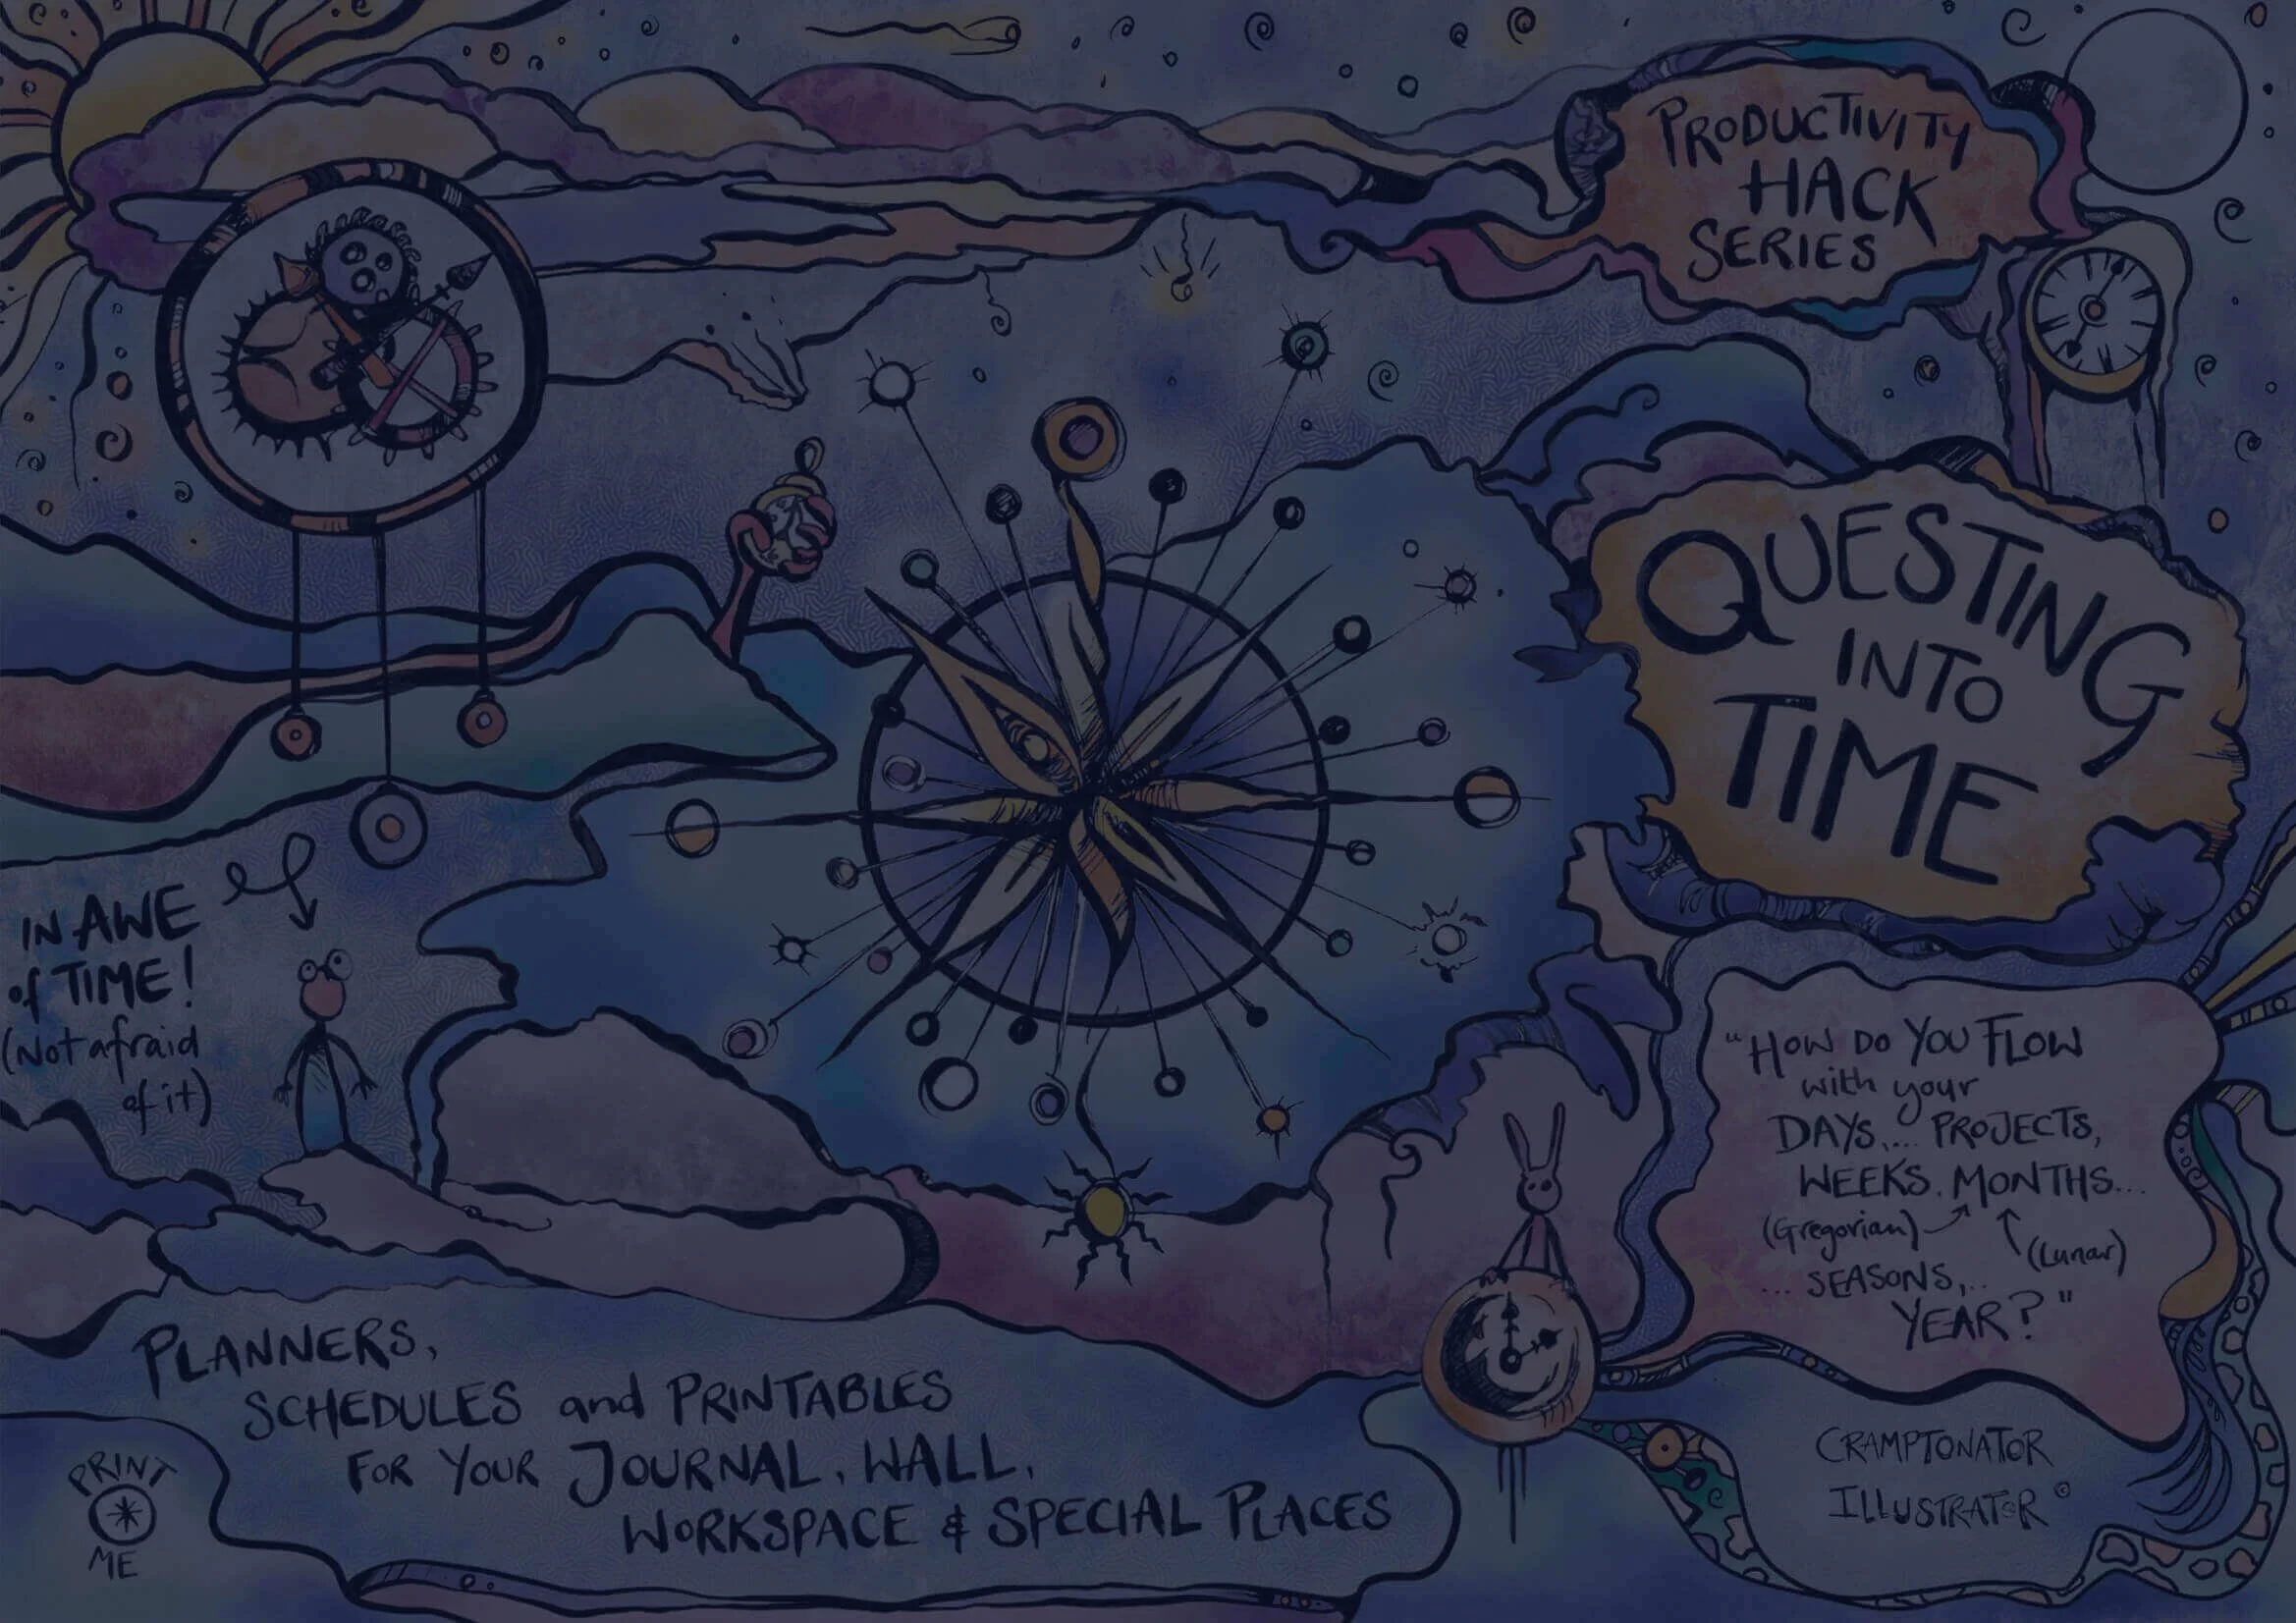 PRODUCTIVITY
HACK
SERIES
QUESTING
INTO
TIME
IN AWE
of TIME!
(Not afraid
of it)
"HOW DO YOU FLOW
with your
DAYS.... PROJECTS,
WEEKS. MONTHS...
(Gregorian)
(Lunar)
... SEASONS,..
YEAR?"
PLANNERS,
SCHEDULES and PRINTABLES
FOR YOUR JOURNAL, WALL,
WORKSPACE & SPECIAL PLACES
PRINT
ME
CRAMPTONATOR
ILLUSTRATOR ©